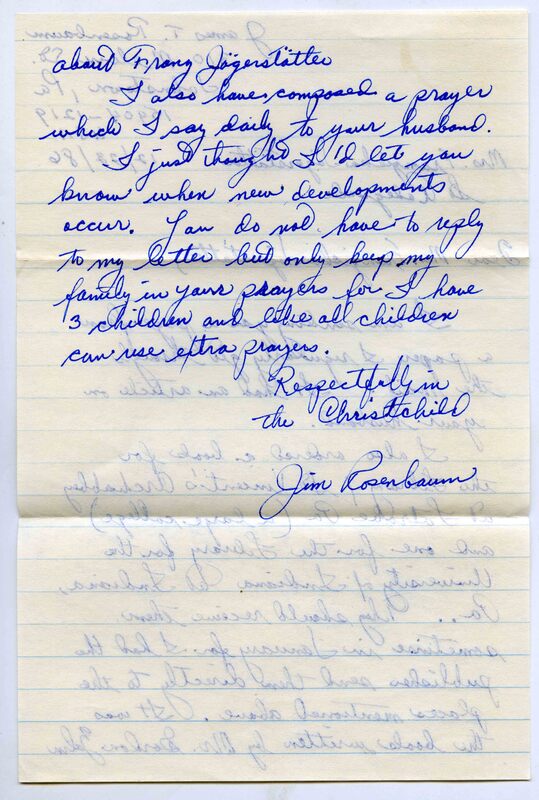 about Franz Jägerstätter
I also have composed a prayer
which I say daily to your husband.
I just thought I'd let you
know when new developments
occur. You do not have to reply
to my letter but only keep my
family in your prayers for I have
3 children and like all children
can use extra prayers.
Respectfully in
the Christchild
Jim Rosenbaum